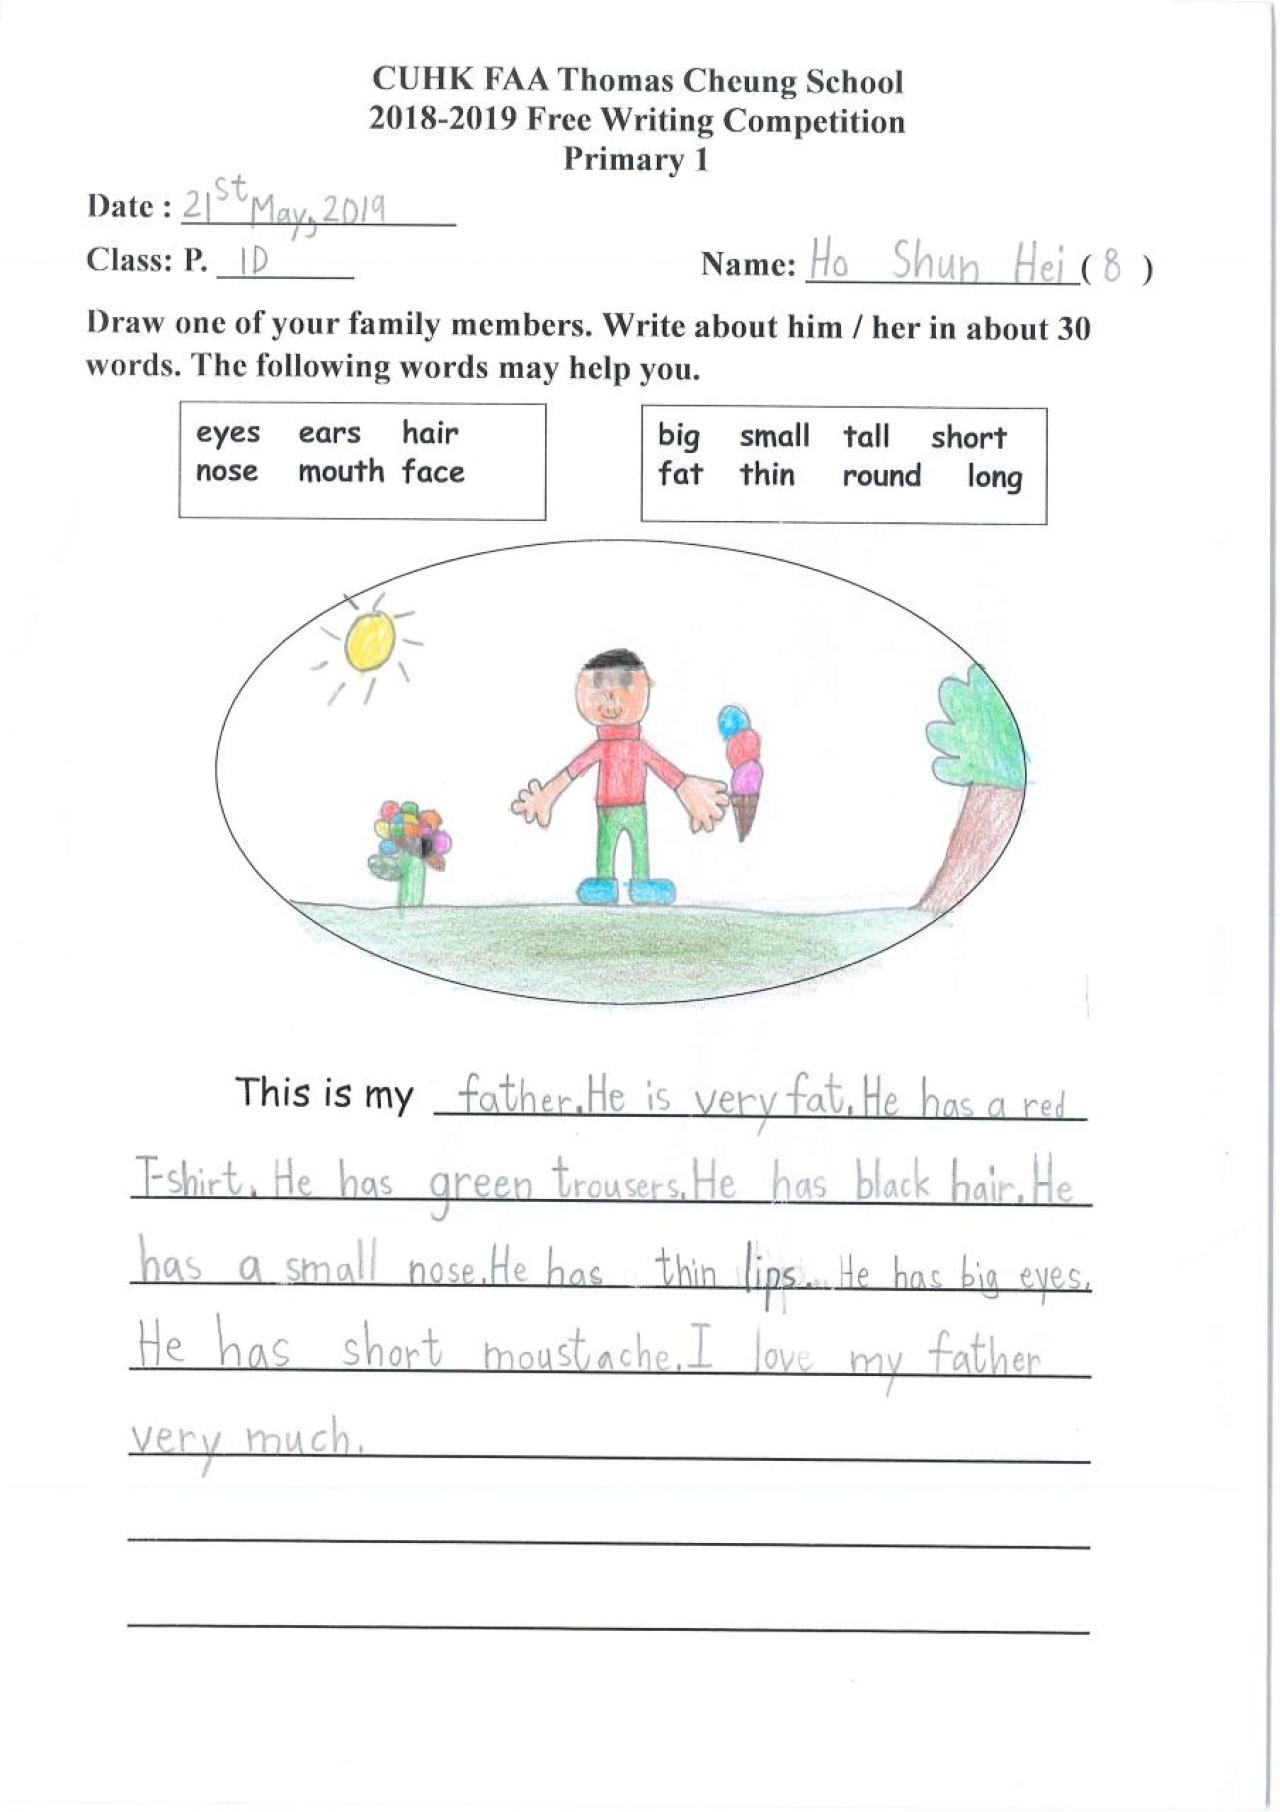 CUHK FAA Thomas Cheung School
2018-2019 Free Writing Competition
Primary 1
Date : 21st May, 2019
Class: P. 1D Name: Ho Shun Hei ( 8 )
Draw one of your family members. Write about him / her in about 30
words. The following words may help you.
eyes ears hair
nose mouth face
big small tall short
fat thin round long
This is my father. He is very fat. He has a red
T-shirt. He has green trousers. He has black hair. He
has a small nose. He has thin lips. He has big eyes.
He has short moustache. I love my father
very much.